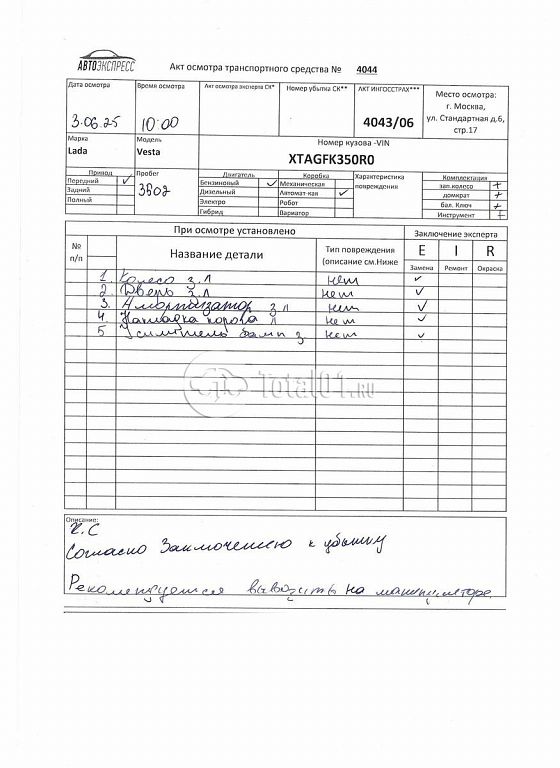 АВТОЭКСПРЕСС
Акт осмотра транспортного средства № 4044
Дата осмотра
3.06.25
Время осмотра
10:00
Акт осмотра эксперта СК*
Номер убытка СК**
АКТ ИНГОССТРАХ***
4043/06
Место осмотра:
г. Москва,
ул. Стандартная д.6,
стр.17
Марка
Lada
Модель
Vesta
Номер кузова -VIN
XTAGFK350R0
Привод
Передний ✓
Задний
Полный
Пробег
Двигатель
Бензиновый ✓
Дизельный
Электро
Гибрид
Коробка
Механическая
Автомат-кая ✓
Робот
Вариатор
Характеристика
повреждения
Комплектация
зап.колесо +
домкрат +
бал. Ключ +
Инструмент +
При осмотре установлено
Заключение эксперта
№
п/п
Название детали
Тип повреждения
(описание см.Ниже
E I R
Замена Ремонт Окраска
1. Колесо з.л нет ✓
2 Дверь з.л нет ✓
3. Амортизатор з л нет ✓
4. Накладка порога л нет ✓
5 Усилитель бамп з нет ✓
Total01.RU
Описание:
К.С
Согласно Заключению к убытку
Рекомендуется вывозить на манипуляторе.